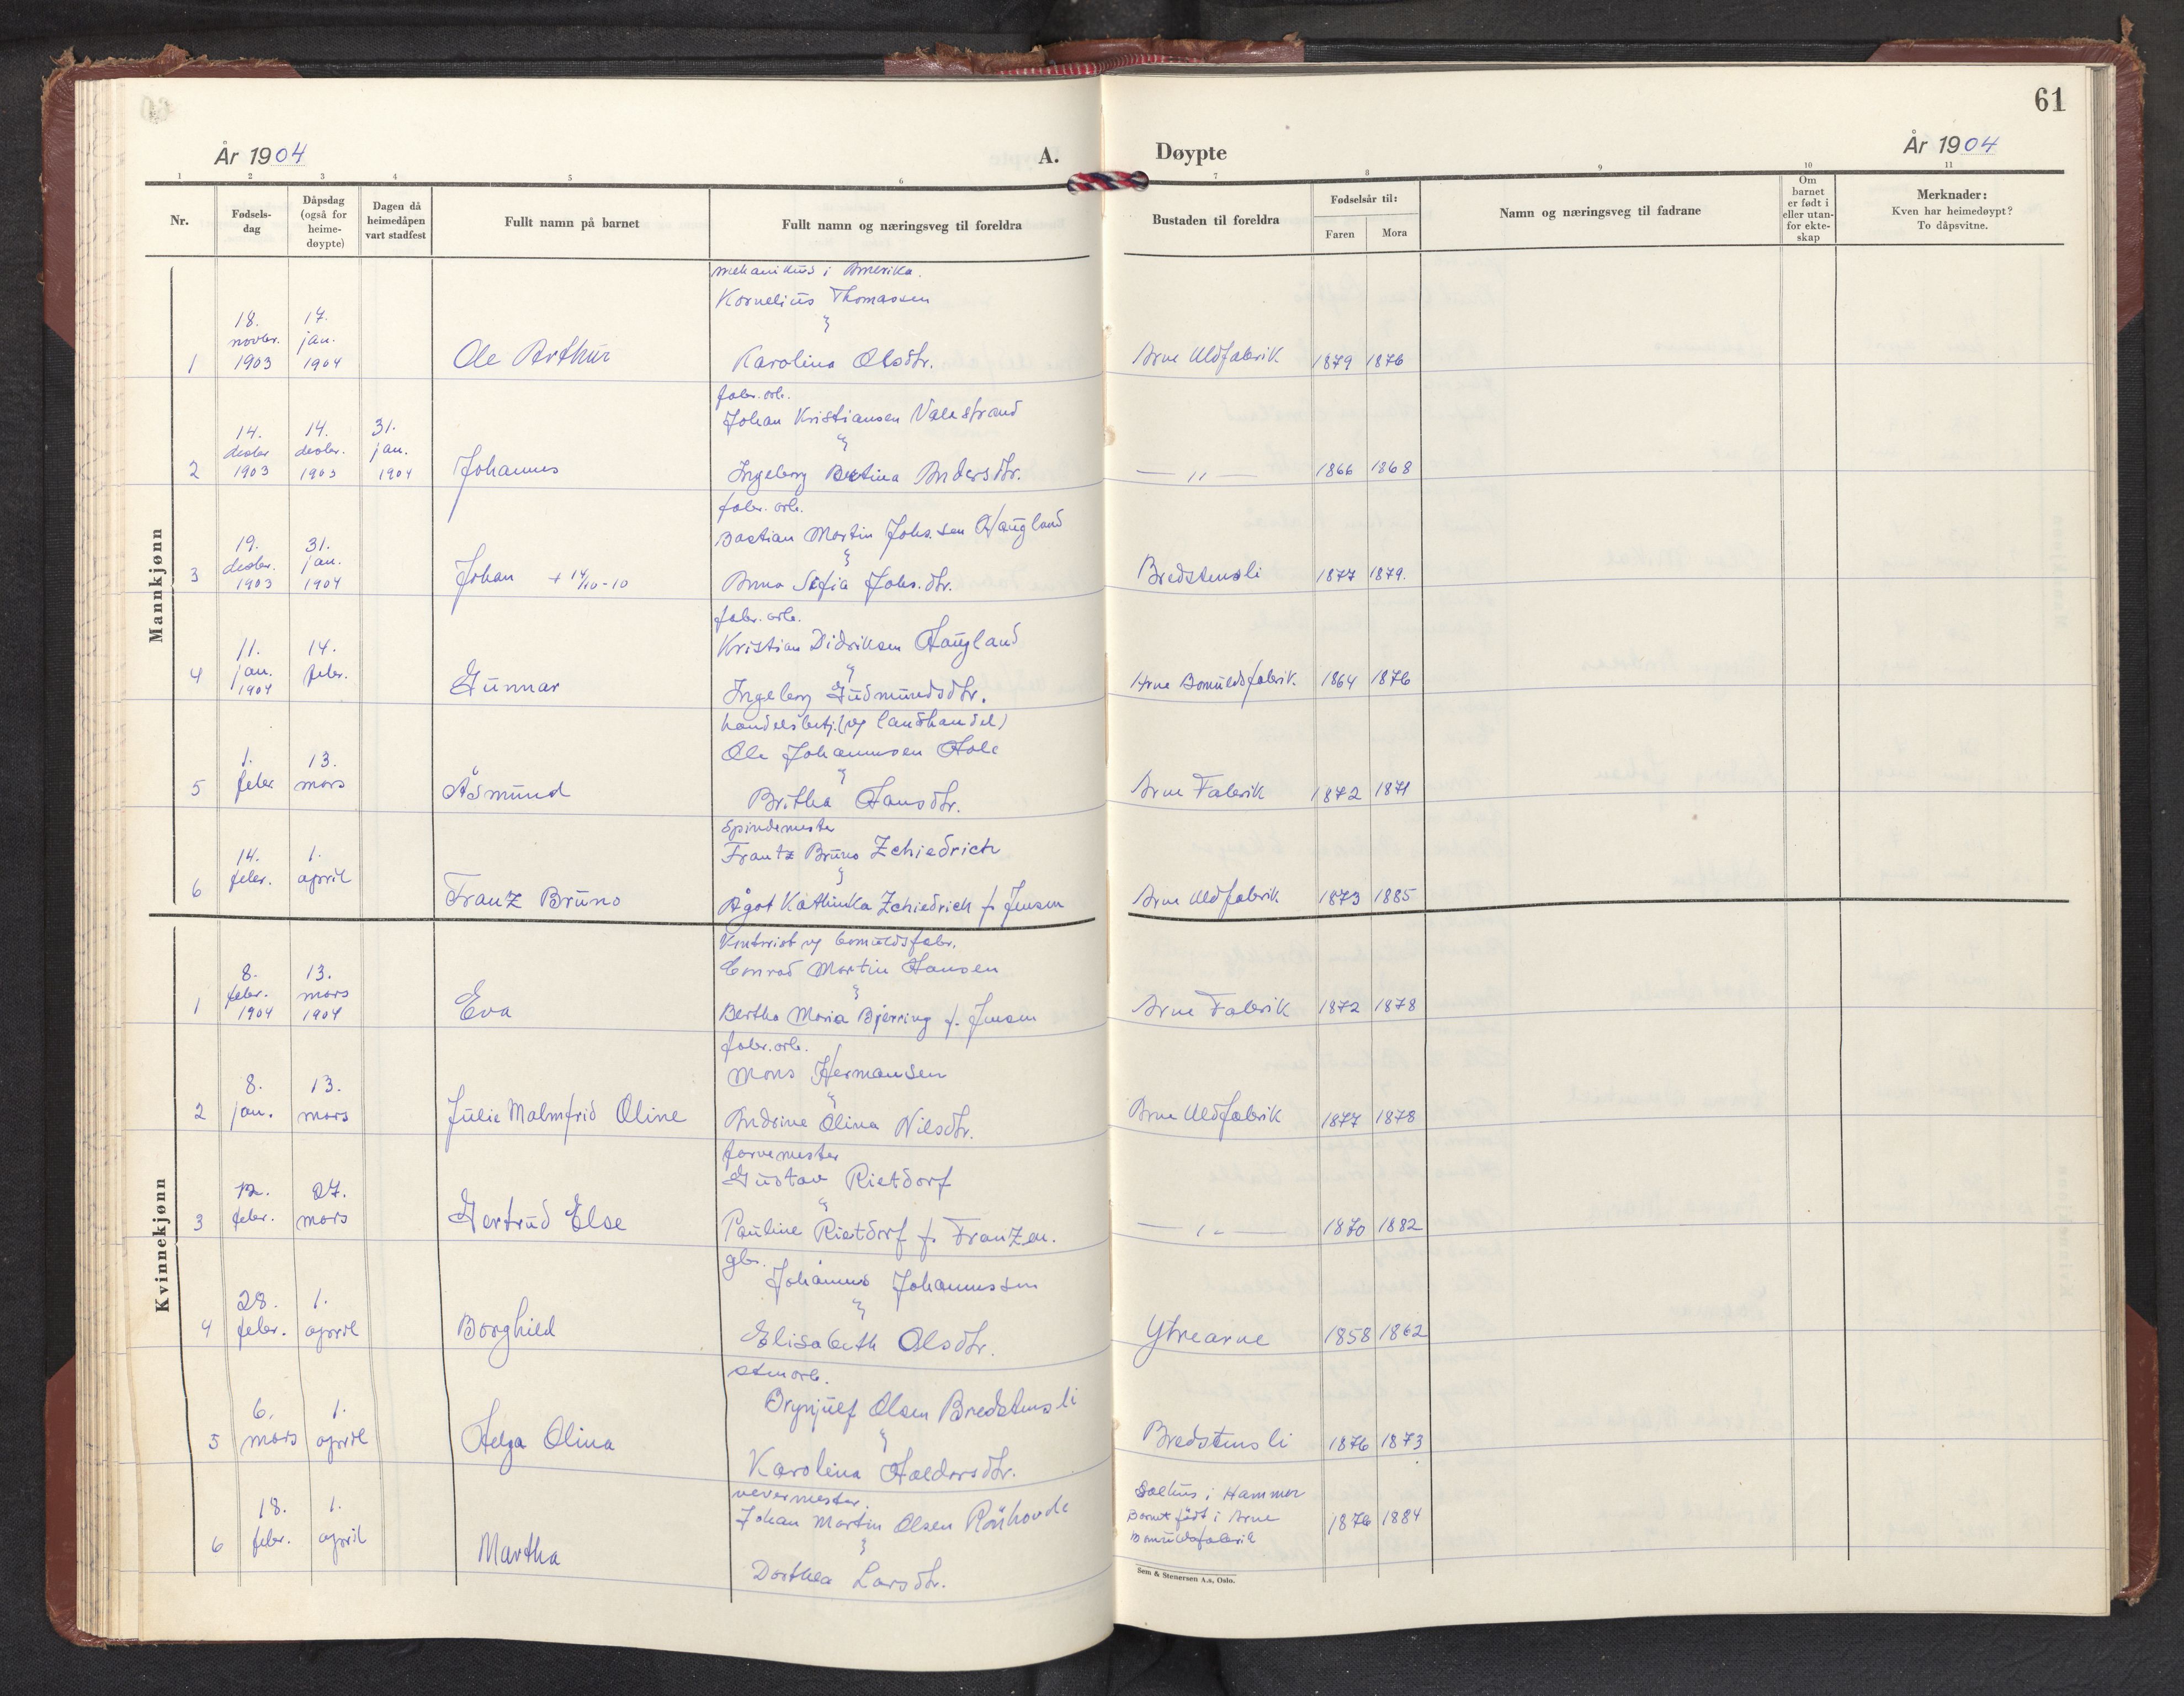 61
År 1904 A. Døypte År 1904
1 2 3 4 5 6 7 8 9 10 11
Nr. Fødsels-dag Dåpsdag (også for heime-døypte) Dagen då heimedåpen vart stadfest Fullt namn på barnet Fullt namn og næringsveg til foreldra Bustaden til foreldra Fødselsår til: Faren Mora Namn og næringsveg til fadrane Om barnet er født i eller utan-for ekte-skap Merknader: Kven har heimedøypt? To dåpsvitne.
Mannkjønn
mekanikus i Amerika.
Kornelius Thomassen
1 18. novbr. 1903 17. jan. 1904 Ole Arthur Karolina Olsdtr. Arne Uldfabrik 1879 1876
fabr. arb.
Johan Kristiansen Valestrand
2 14. desbr 1903 14. desbr. 1903 31. jan. 1904 Johannes Ingeborg Bertina Andersdtr. — " — 1866 1868
fabr. arb.
Bastian Martin Johs.sen Haugland
3 19. desbr. 1903 31. jan. 1904 Johan + 14/10-10 Anna Sofia Johs.dtr. Bredstensli 1877 1879.
fabr. arb.
Kristian Didriksen Haugland
4 11. jan. 1904 14. febr. Gunnar Ingeborg Gudmundsdtr. Arne Bomuldsfabrik. 1864 1876
handelsbetj. (og landhandel)
Ole Johannesen Hole
5 1. febr 13. mars Åsmund Britha Hansdtr. Arne Fabrik 1872 1871
Spindemester
Frantz Bruno Zchiedrich
6 14. febr. 1. april Franz Bruno Ågot Kathinka Zchiedrich f. Jensen Arne Uldfabrik 1873 1885
Kvinnekjønn
Kontorist og bomuldsfabr.
Conrad Martin Hansen
1 8. febr. 1904 13. mars 1904 Eva Bertha Maria Bjerring f. Jensen Arne Fabrik 1872 1878
fabr. arb.
Mons Hermansen
2 8. jan. 13. mars Julie Malmfrid Oline Andrine Olina Nilsdtr. Arne Uldfabrik 1877 1878
farvemester
Gustav Rietdorf
3 12. febr. 27. mars Gertrud Else Pauline Rietdorf f. Franzen. — " — 1870 1882
gbr.
Johannes Johannessen
4 28. febr. 1. april Borghild Elisabeth Olsdtr. Ytrearne 1858 1862
stenarb.
Brynjulf Olsen Bredstensli
5 6. mars 1. april Helga Olina Karolina Haldorsdtr. Bredstensli 1876 1873
vevermester.
Johan Martin Olsen Rönhovde
6 18. febr. 1. april Martha Dorthea Larsdtr. Salhus i Hammer Barnet født i Arne Bomuldsfabrik 1876 1884
Sem & Stenersen A.s, Oslo.